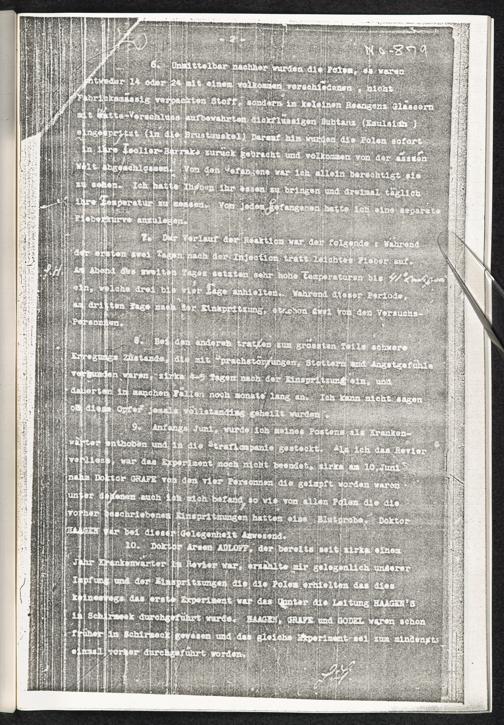 - 2 -
No-879
6. Unmittelbar nachher wurden die Polen, es waren
entweder 14 oder 24 mit einem volkommen verschiedenen , nicht
Fabrickmassig verpackten Stoff, sondern in keleinen Reangenz Glassern
mit Watte-Verschluss aufbewahrten dickflussigen Subtanz (Emulsion )
eingespritzt (in die Brustmuskel) Darauf hin wurden die Polen sofort
in ihre Isolier-Barrake zuruck gebracht und volkommen von der aussen
Welt abgeschlossen. Von den Gefangene war ich allein berechtigt sie
zu sehen. Ich hatte Ihnen ihr essen zu bringen und dreimal taglich
ihre Temperatur zu messen. Von jeden Gefangenen hatte ich eine separate
Fieberkurve anzulegen.
7. Der Verlauf der Reaktion war der folgende : Wahrend
der ersten zwei Tagen nach der Injection tratt leichtes Fieber auf.
Am Abend des zweiten Tages setzten sehr hohe Temperaturen bis 41°
ein, welche drei bis vier Tage anhielten. Wahrend dieser Periode,
am dritten Tage nach der Einspritzung, starben zwei von den Versuchs-
Personnen.
8. Bei den anderen traten zum grossten Teils schwere
Erregungs Zustande, die mit "prachstorrungen, Stottern und Angstgefuhle
verbunden waren, zirka 4-5 Tagen nach der Einspritzung ein, und
dauerten in manchen Fallen noch monate lang an. Ich kann nicht sagen
ob diese Opfer jemals vollstandig geheilt wurden .
9. Anfangs Juni, wurde ich meines Postens als Kranken-
warter enthoben und in die Strafkompanie gesteckt. Als ich das Revier
verliess, war das Experiment noch nicht beendet, zirka am 10.Juni
nahm Doktor GRAFE von den vier Personnen die geimpft worden waren
unter denenen auch ich mich befand, so wie von allen Polen die die
vorher beschriebenen Einspritnungen hatten eine Blutprobe. Doktor
HAAGEN war bei dieser Gelegenheit Anwesend.
10. Doktor Arsen ADLOFF, der bereits seit zirka einem
Jahr Krankenwarter im Revier war, erzahlte mir gelegenlich unserer
Impfung und der Einspritzungen die die Polen erhielten das dies
keineswegs das erste Experiment war das unter die Leitung HAAGEN'S
in Schirmeck durchgefuhrt wurde. HAAGEN, GRAFE und GODEL waren schon
fruher in Schirmeck gewesen und das gleiche Experiment sei zum mindensts
einmal vorher durchgefuhrt worden.